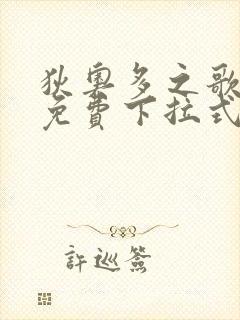 狄奥多之歌
免費下拉式
許巡簽